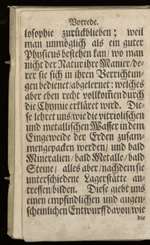 Vorrede.
losophie zurückblieben; weil
man unmöglich als ein guter
Physicus bestehen kan / wo man
nicht der Natur ihre Manier / de-
rer sie sich in ihren Verrichtun-
gen bedienet abgelernet: welches
aber eben recht vollkom̃en durch
die Chymie erkläret wird. Die-
se lehret uns / wie die vitriolischen
und metallischen Wasser in dem
Eingeweide der Erden zusam-
mengepacken werden / und bald
Mineralien / bald Metalle / bald
Steine / alles aber / nachdem sie
unterschiedene Lagerstätte an-
treffen bilden. Diese giebt uns
einen empfindlichen und augen-
scheinlichen Entwurff davon / wie
die